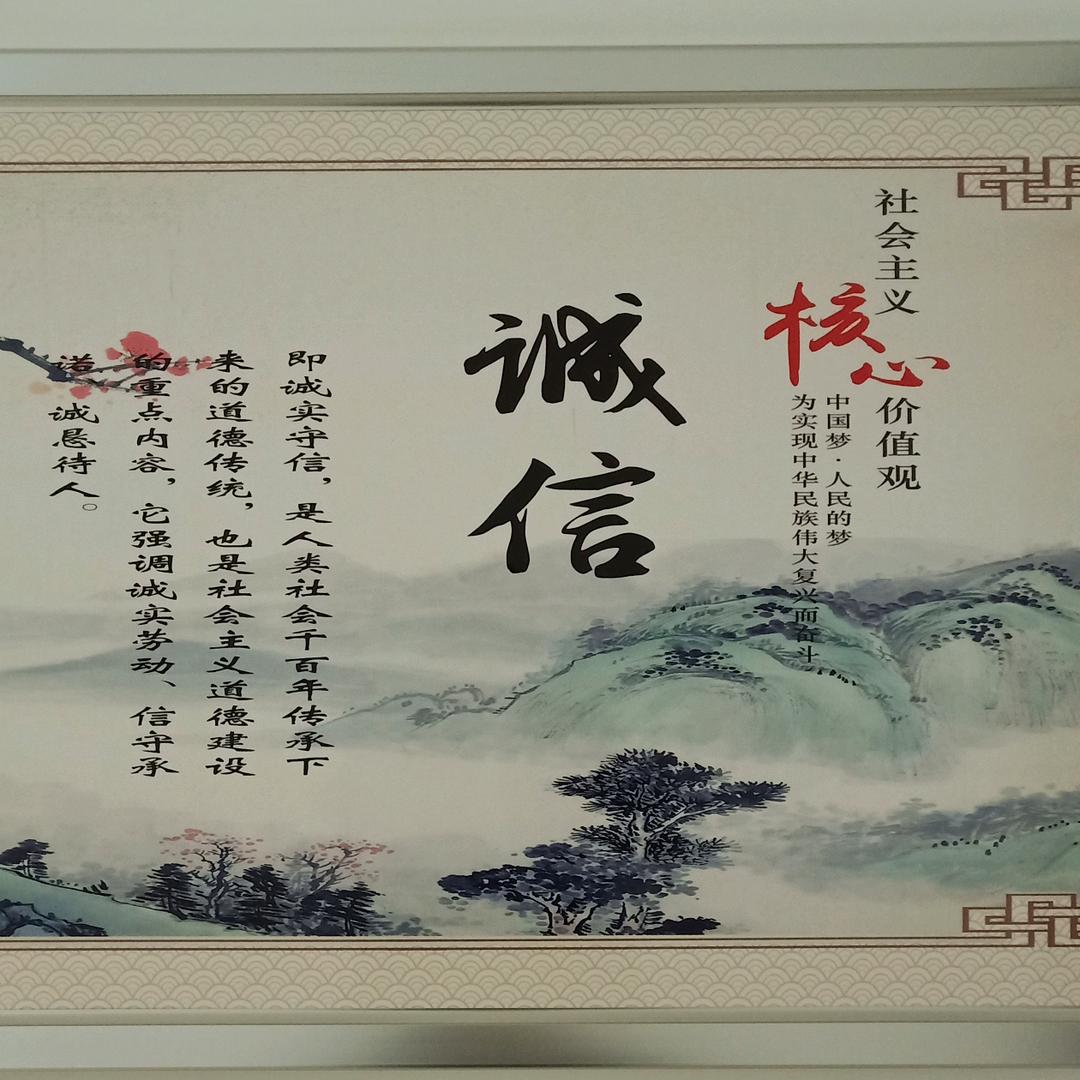 社会主义核心价值观
中国梦·人民的梦
为实现中华民族伟大复兴而奋斗
诚信
即诚实守信，是人类社会千百年传承下
来的道德传统，也是社会主义道德建设
的重点内容，它强调诚实劳动、信守承
诺、诚恳待人。